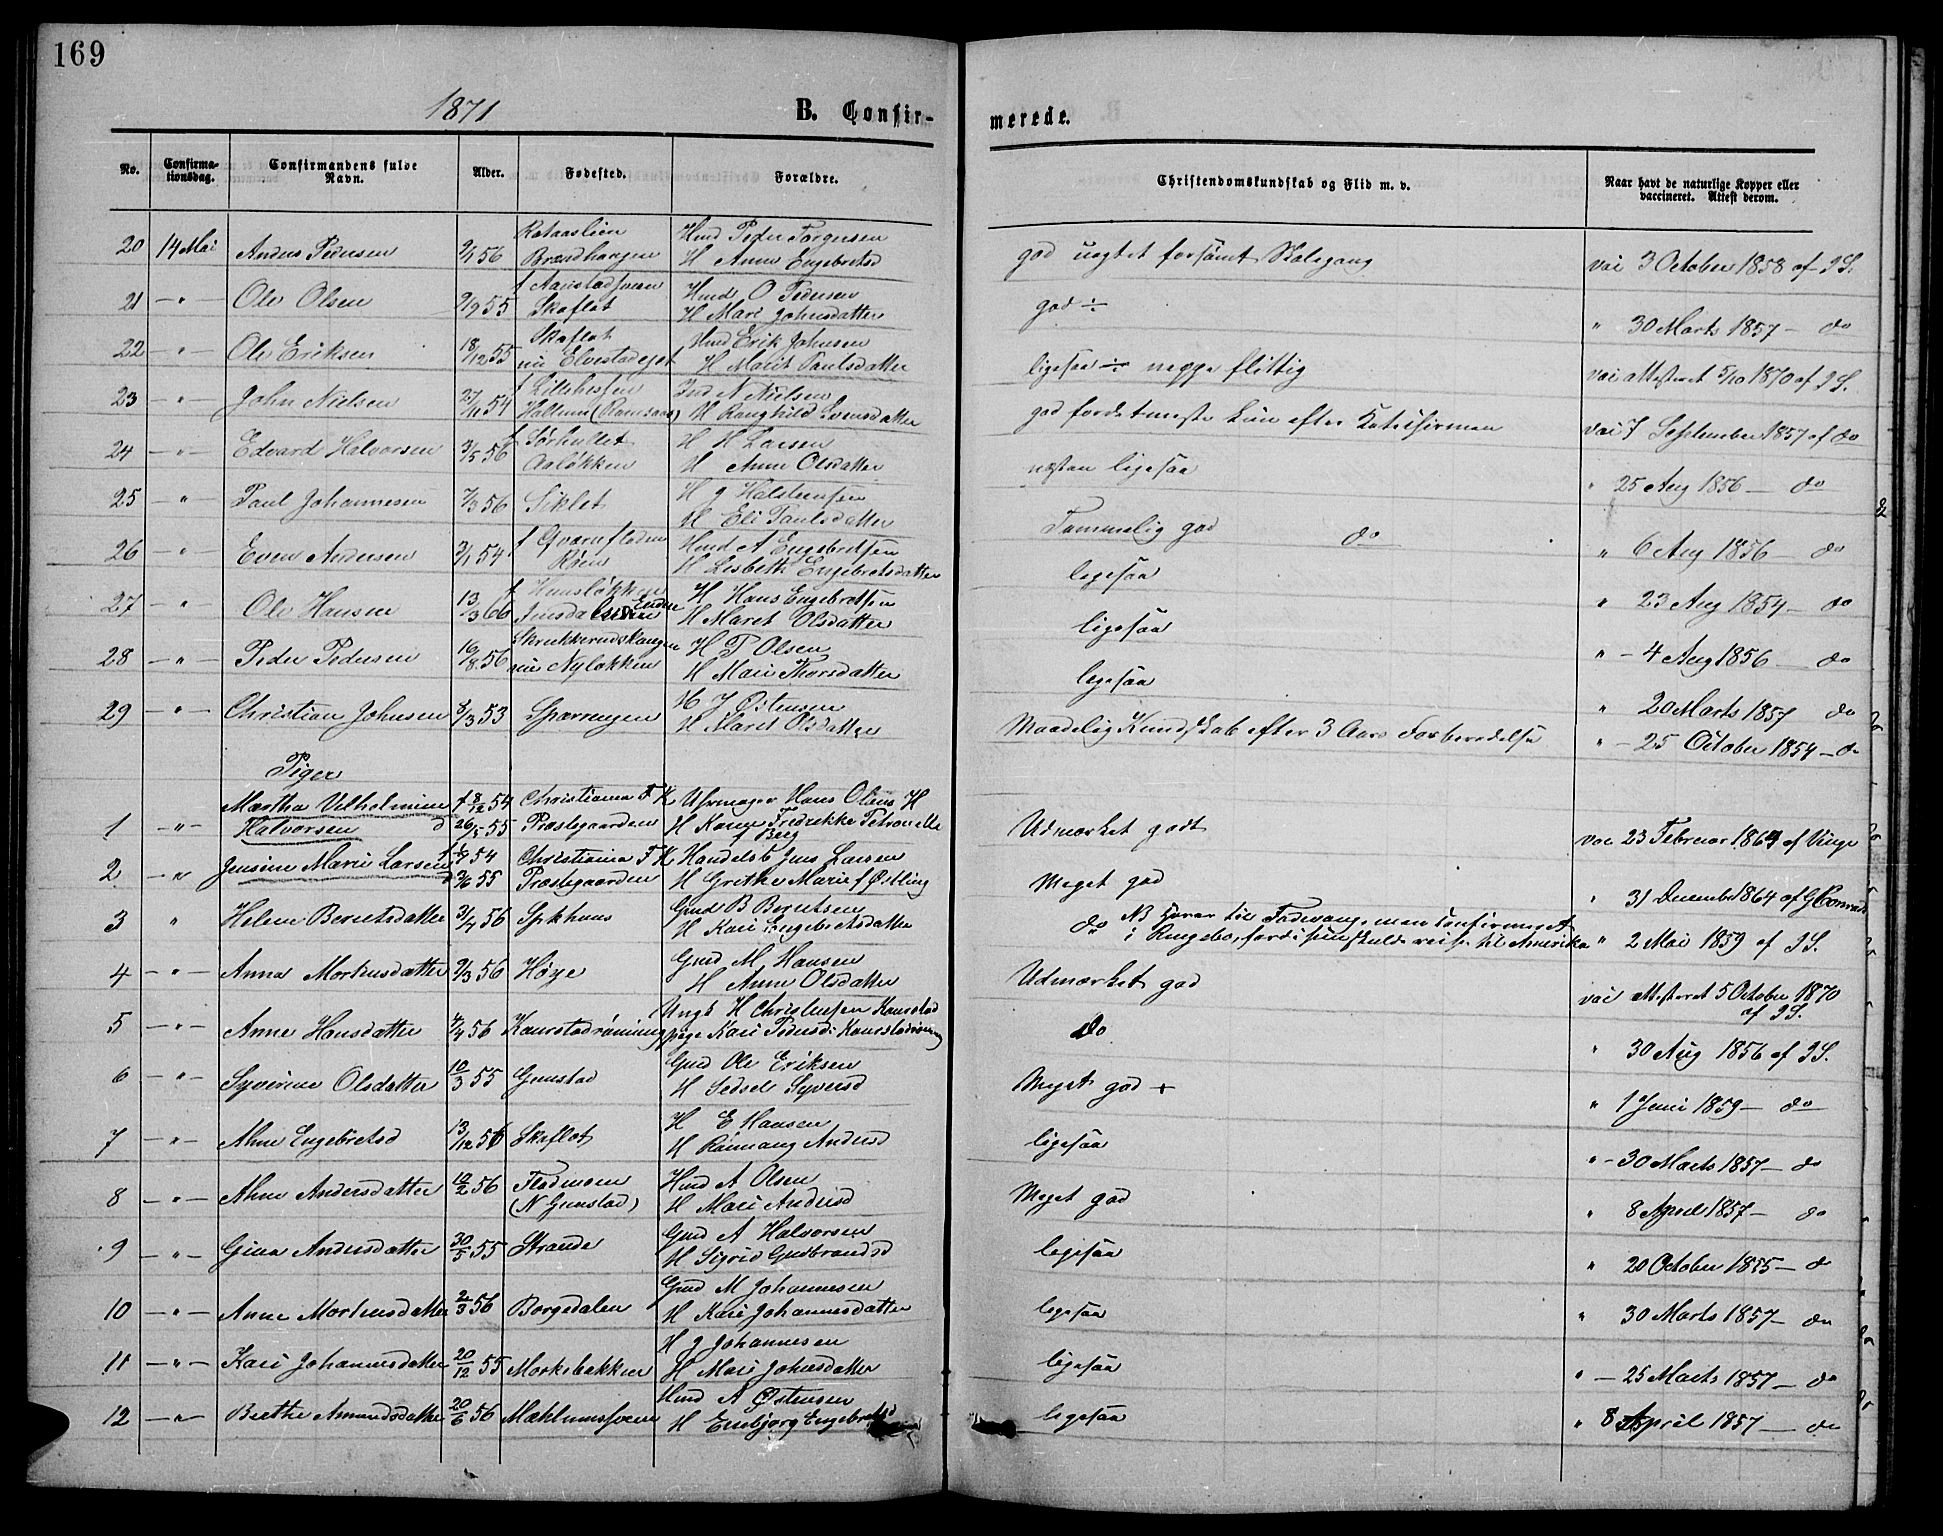 169
1871 B. Confirmerede.
No. Confirmationsdag. Confirmandens fulde Navn. Alder. Fødested. Forældre. Christendomskundskab og Flid m. v. Naar havt de naturlige Kopper eller vaccineret. Attest derom.
20 14 Mai Anders Pedersen 56 Brændhaugen H Anne Engebretsd god uagtet forsømt Skolegang vac 3 October 1858 af J S.
21 — " — Ole Olsen 2/9 55 Skaflot Hmd O Pedersen H Mari Johnsdatter god ÷ " 30 Marts 1857 — do
22 — " — Ole Eriksen 18/12 55 Skaflot nu Elvestadeget Hmd Erik Johnsen H Marit Paulsdatter ligesaa ÷ neppe flittig vac attesteret 5/10 1870 af J S.
23 — " — John Nielsen 27/11 54 Ind N Nielsen H Ranghild Svensdatter god fordetmeste kun efter vac 7 September 1857 af do
24 — " — Edvard Halvorsen 3/5 56 Aaløkken H H Larsen H Anne Olsdatter næsten ligesaa " 25 Aug 1856 — do
25 — " — Paul Johannesen 7/3 56 Siklet H J Halstensen H Eli Paulsdatter Temmelig god do " 6 Aug 1856 — do
26 — " — Even Andersen 3/1 54 f Qvarnfloden Røen Hmd A Engebretsen H Lisbeth Engebretsdatter ligesaa " 23 Aug 1854 — do
27 — " — Ole Hansen 13/3 66 H Hans Engebretsen H Maret Olsdatter ligesaa " — 4 Aug 1856 — do
28 — " — Peder Pedersen 16/8 56 Skrukkerudshaugen nu Nyløkken H P Olsen H Mari Thorsdatter ligesaa " 20 Marts 1857 do
29 — " — Christian Johnsen 8/3 53 Sparrungen H J Østensen H Maret Olsdatter Maadelig Kundskab efter 3 Aars Forberedelse " — 25 October 1854 — do
Piger
1 — " — Martha Vilhelmine Halvorsen f 8/12 54 d 26/5 55 Christiania F K Præstegaarden Uhrmager Hans Olaus H H Karen Fredrikke Petronelle f Berg Udmærket godt vac 23 Februar 1864 af Vinge
2 — " Jensine Marie Larsen 54 55 Christiania F K Præstegaarden Handelsb Jens Larsen H Grethe Marie f Østling Meget god " 31 December 1864 af
3 " Helene Berntsdatter 3/4 56 Spkhuus Gmd B Berntsen H Kari Engebretsdatter do NB hører til Fodvang, men confirmeret i Ringebo, fordi hun skulde reise til Amerika " 2 Mai 1859 af J S.
4 — " — Anna Mortensdatter 9/3 56 Høye Gmd M Hansen H Anne Olsdatter Udmærket god vac attesteret 5 October 1870 af J S.
5 — " — Anne Hansdatter 4/4 56 Kanstadrøning Ungk H Christensen Kanstad pige Kari Pedersd: Kanstadrøning do " 30 Aug 1856 af J S.
6 — " — Syverine Olsdatter 10/3 55 Gunstad Gmd Ole Eriksen H Sedsel Syversd Meget god + " 1 Juni 1859 — do
7 — " — Anne Engebretsd 13/12 56 Skaflot H E Hansen H Rønnaug Andersd ligesaa " — 30 Marts 1857 — do
8 — " — Anne Andersdatter 10/2 56 Flodmoen (N Gunstad) Hmd A Olsen H Mari Andersd Meget god " 8 April 1857 — do
9 — " — Gina Andersdatter 30/5 55 Strande Gmd A Halvorsen H Sigrid Gudbrandsd ligesaa " 20 October 1855 — do
10 — " — Anne Mortensdatter 2/3 56 Borgedalen Gmd M Johannesen H Kari Johannesdatter ligesaa " 30 Marts 1857 — do
11 — " — Kari Johannesdatter 20/12 55 Morkebakken H J Johannesen H Mari Johnsdatter ligesaa " — 25 Marts 1857 — do
12 — " — Berthe Amundsdatter 20/6 56 Mæhlumssveen Hmd A Østensen H Engebretsd ligesaa " 8 April 1857 — do